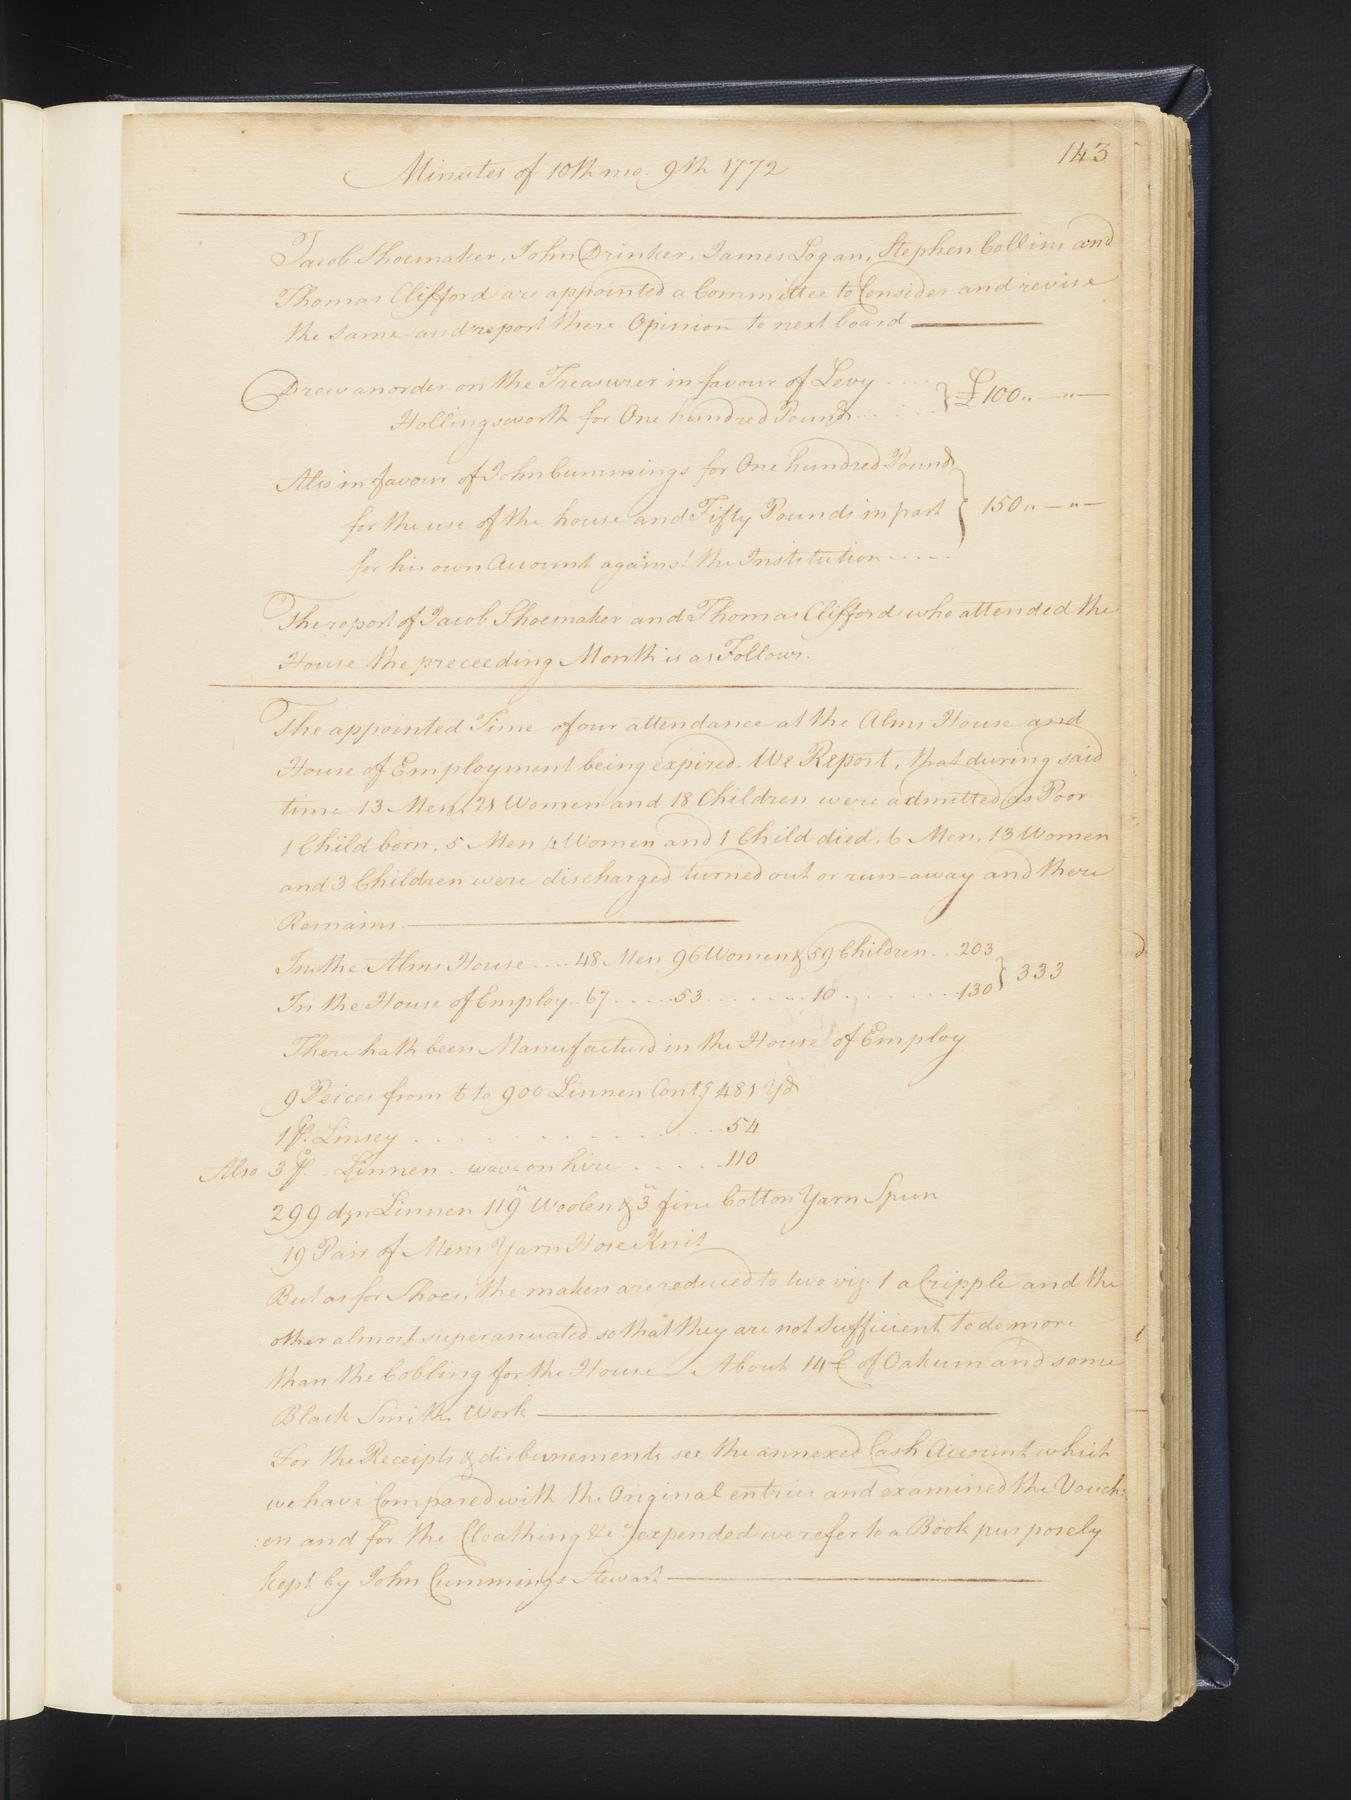 143
Minutes of 10th mo. 9th 1772
Jacob Shoemaker, John Drinker, James Logan, Stephen Collins and
Thomas Clifford are appointed a Committee to Consider and revise
the same and report there Opinion to next board
Drew an order on the Treasurer in favour of Levy ....
Hollingsworth for One hundred Pounds ...... } £100 „ — „ —
Also in favour of John Cummings for One hundred Pounds
for the use of the house and Fifty Pounds in part } 150 „ — „ —
for his own Account against the Institution .....
The report of Jacob Shoemaker and Thomas Clifford who attended the
House the preceeding Month is as Follows.
The appointed Time of our attendance at the Alms House and
House of Employment being expired. We Report, that during said
time 13 Men, 21 Women and 18 Children were admitted as Poor
1 Child born. 5 Men 4 Women and 1 Child died. 6 Men. 13 Women
and 3 Children were discharged turned out or run-away and there
Remains
In the Alms House .... 48 Men 96 Women & 59 Children .. 203
In the House of Employ .. 67 ..... 53 ........ 10 ........ 130 } 333
There hath been Manufactured in the House of Employ
9 Peices from 6 to 900 Linnen Contg 481 Yd
1 ps. Linsey ............ 54
Also 3 ps. Linnen. wove on hire ..... 110
299 dzn Linnen 119 lb Woolen & 3 lb fine Cotton Yarn Spun
19 Pair of Mens Yarn Hose Knit
But as for Shoes, the makers are reduced to two viz. 1 a Cripple and the
other almost superanuated so that they are not Sufficient to do more
than the Cobling for the House. About 14 C of Oakum and some
Black Smiths Work
For the Receipts & disbursements see the annexed Cash Account which
we have Compared with the Original entries and examined the Vouch:
:ers and for the Cloathing &c expended we refer to a Book purposely
kept by John Cummings Stewart